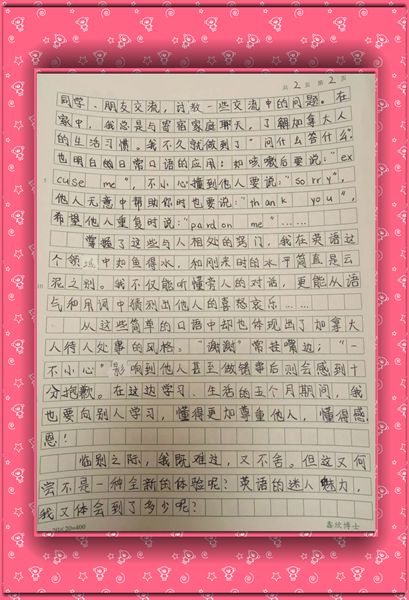 共 2 页 第 2 页
同学、朋友交流，讨教一些交流中的问题。在
家中，我总是与寄宿家庭聊天，了解加拿大人
的生活习惯。我不久就做到了“问什么答什么”，
也明白的日常口语的应用：如咳嗽后要说：“ex
cuse me”，不小心撞到他人要说：“sorry”，
他人无意中帮助你时也要说：“thank you”，
希望他人重复时说：“pardon me”……
掌握了这些与人相处的窍门，我在英语这
个领域中如鱼得水，和刚来时的水平简直是云
泥之别。我不仅能听懂旁人的对话，更能从语
气和用词中猜测出他人的喜怒哀乐……
从这些简单的口语中却也体现出了加拿大
人待人处事的风格。“谢谢”常挂嘴边；“一
不小心”影响到他人甚至做错事后则会感到十
分抱歉。在这边学习、生活的五个月期间，我
也要向别人学习，懂得更加尊重他人，懂得感
恩！
临别之际，我既难过，又不舍。但这又何
尝不是一种全新的体验呢？英语的迷人魅力，
我又体会到了多少呢？
20×20=400
鑫欣博士